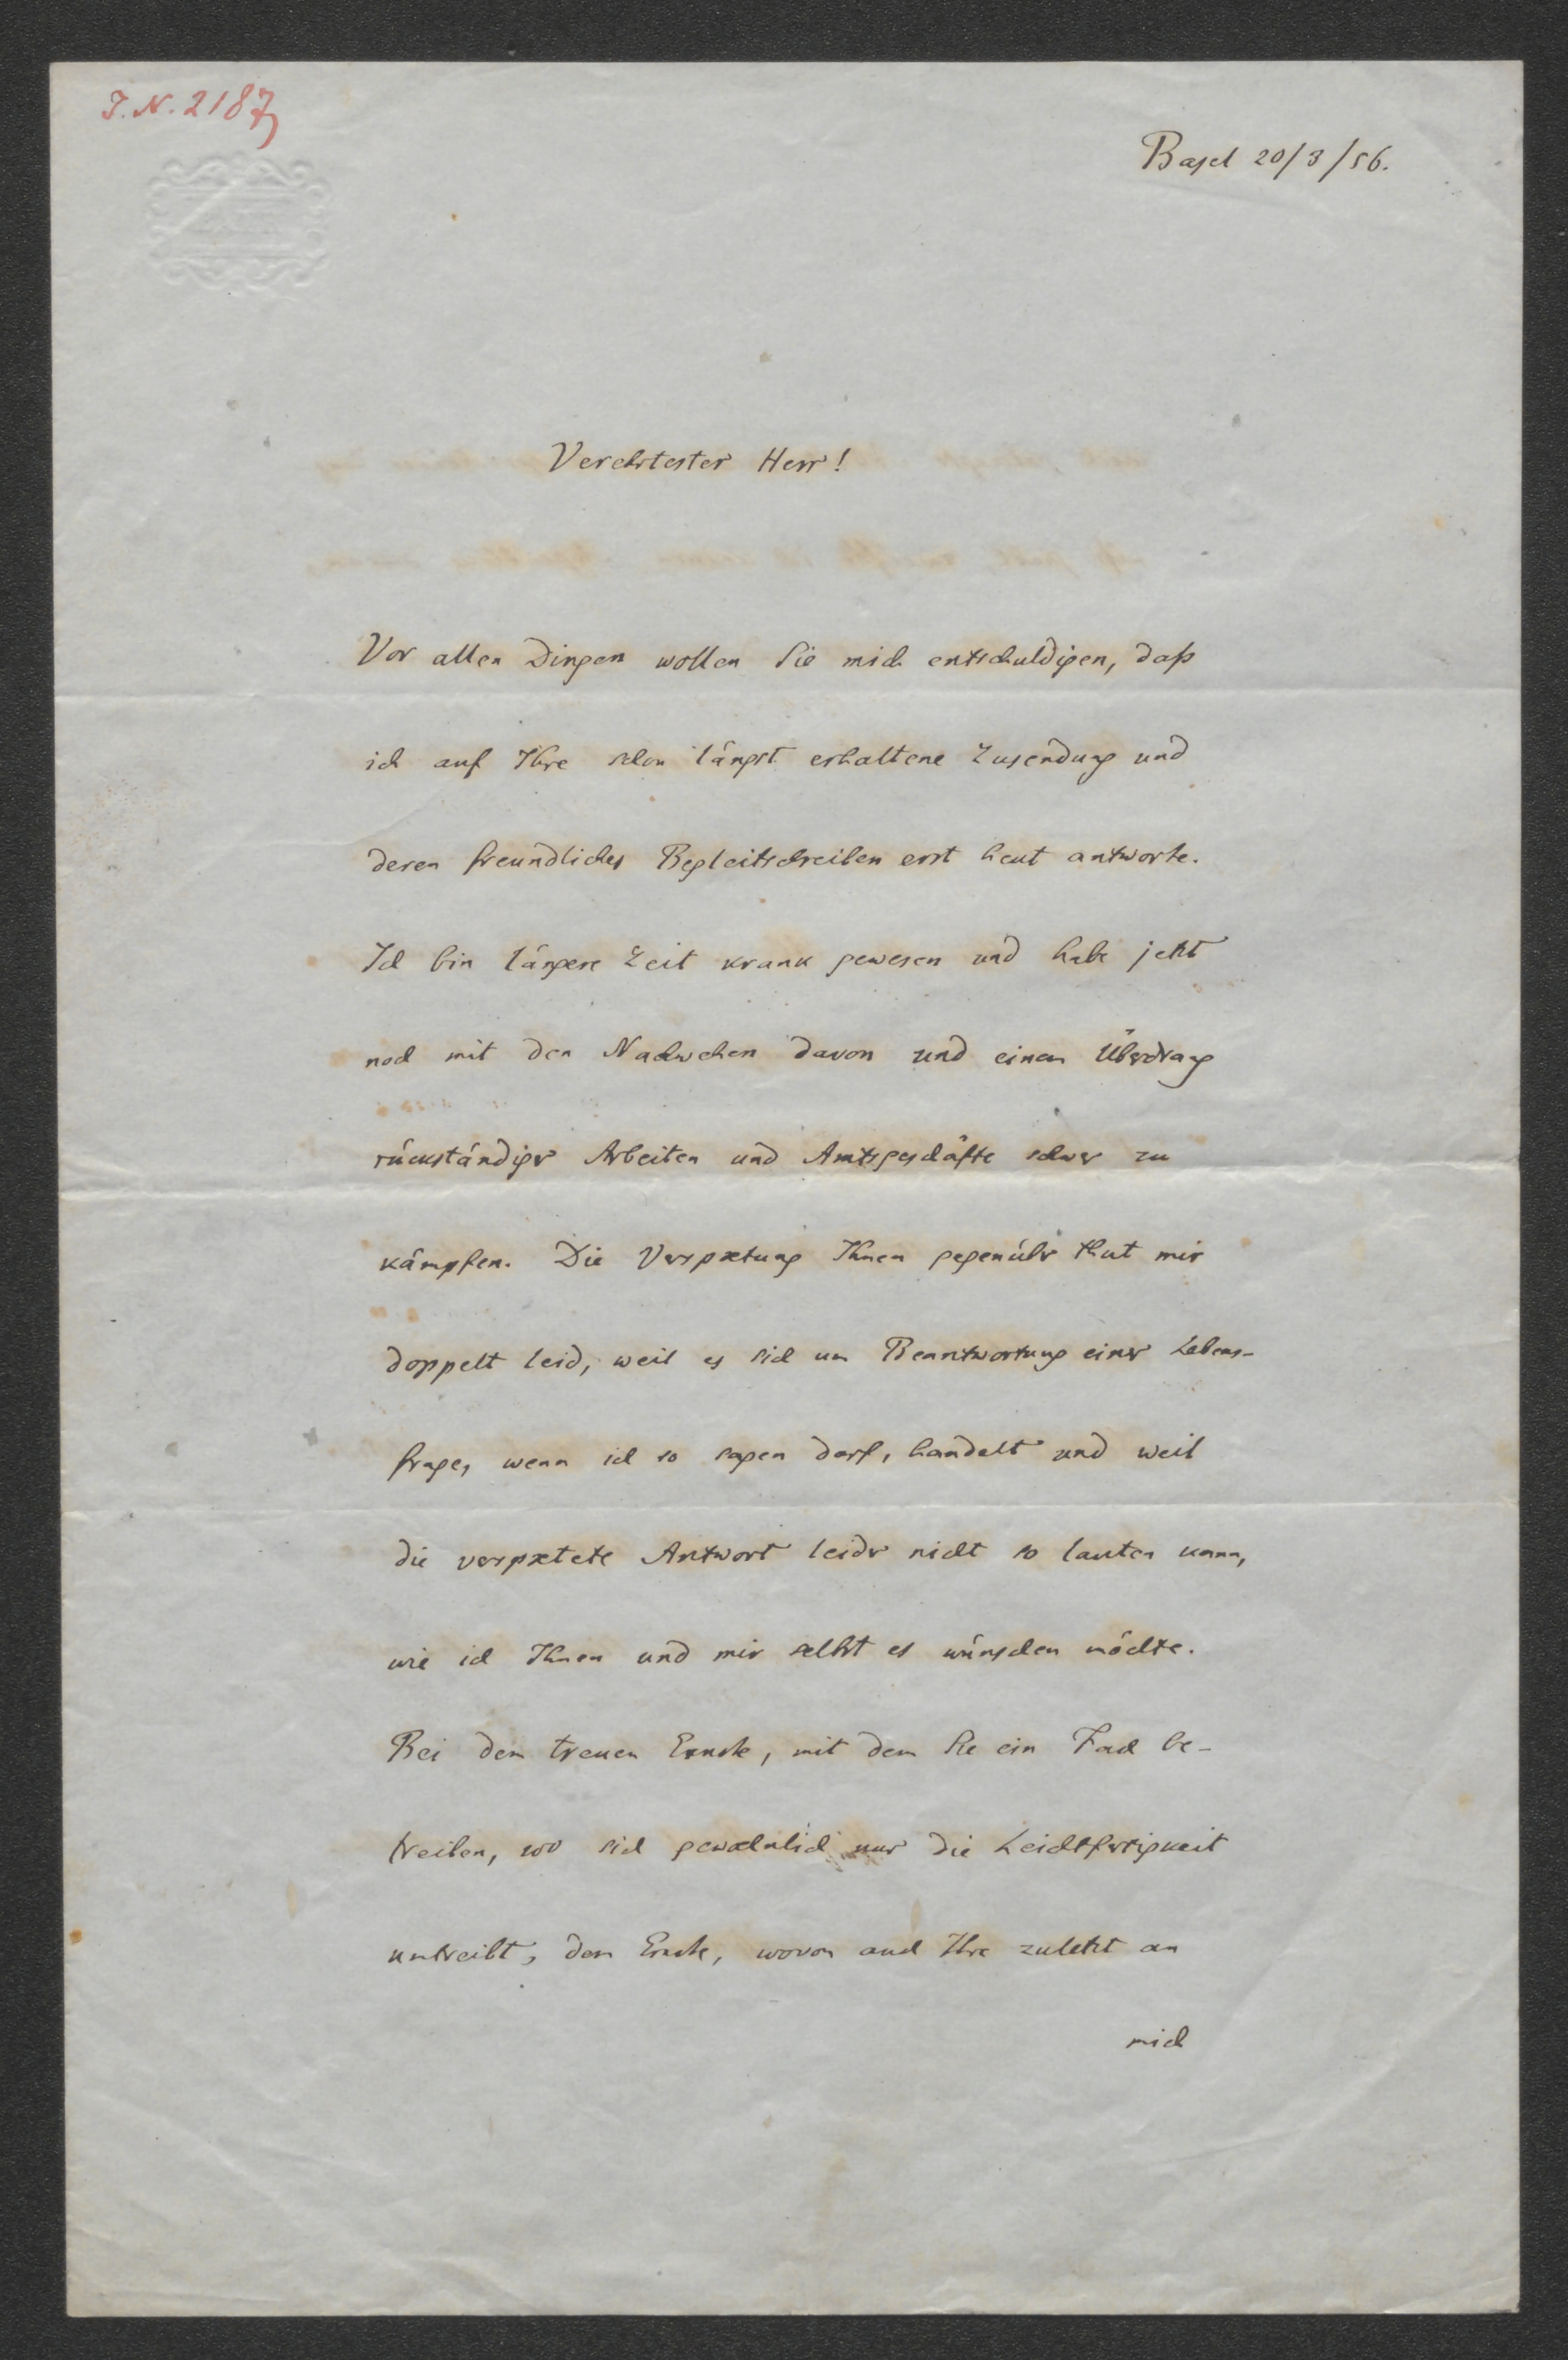 J. N. 2187
Basel 20/3/56.
Verehrtester Herr!
Vor allen Dingen wollen Sie mich entschuldigen, daß
ich auf Ihre schon längst erhaltene Zusendung und
deren freundliches Begleitschreiben erst heut antworte.
Ich bin längere Zeit krank gewesen und habe jetzt
noch mit den Nachwehen davon und einem Überdrang
rückständiger Arbeiten und Amtsgeschäfte schwer zu
kämpfen. Die Verspætung Ihnen gegenüber thut mir
doppelt leid, weil es sich um Beantwortung einer Lebens-
frage, wenn ich so sagen darf, handelt und weil
die verspætete Antwort leider nicht so lauten kann,
wie ich Ihnen und mir selbst es wünschen möchte.
Bei dem treuen Ernste, mit dem Sie ein Fach be-
treiben, wo sich gewœhnlich nur die Leichtfertigkeit
umtreibt, dem Ernste, wovon auch Ihre zuletzt an
mich